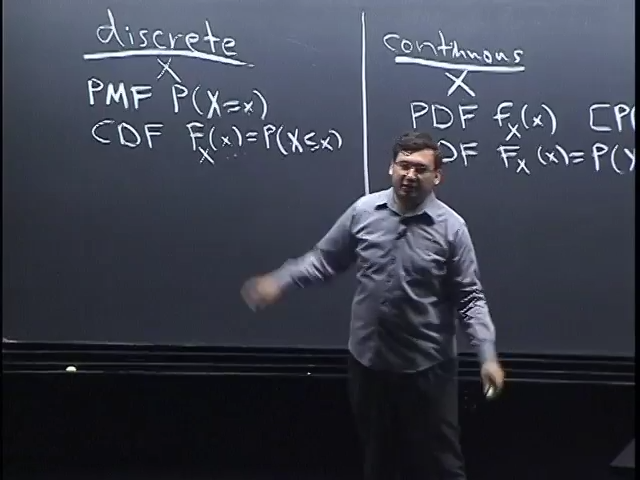 discrete
X
PMF P(X=x)
CDF F_X(x)=P(X≤x)
continuous
X
PDF f_X(x) [P(
DF F_X(x)=P(